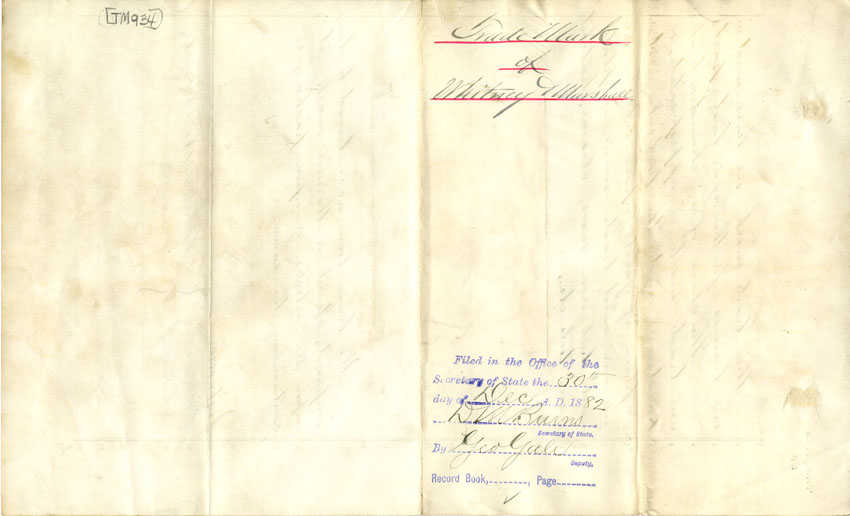 [TM934]
Trade Mark
of
Whitney Marshall
Filed in the Office of the
Secretary of State the 30th
day of Dec A. D. 1882
D M Burns
Secretary of State.
By Geo
Deputy.
Record Book, , Page